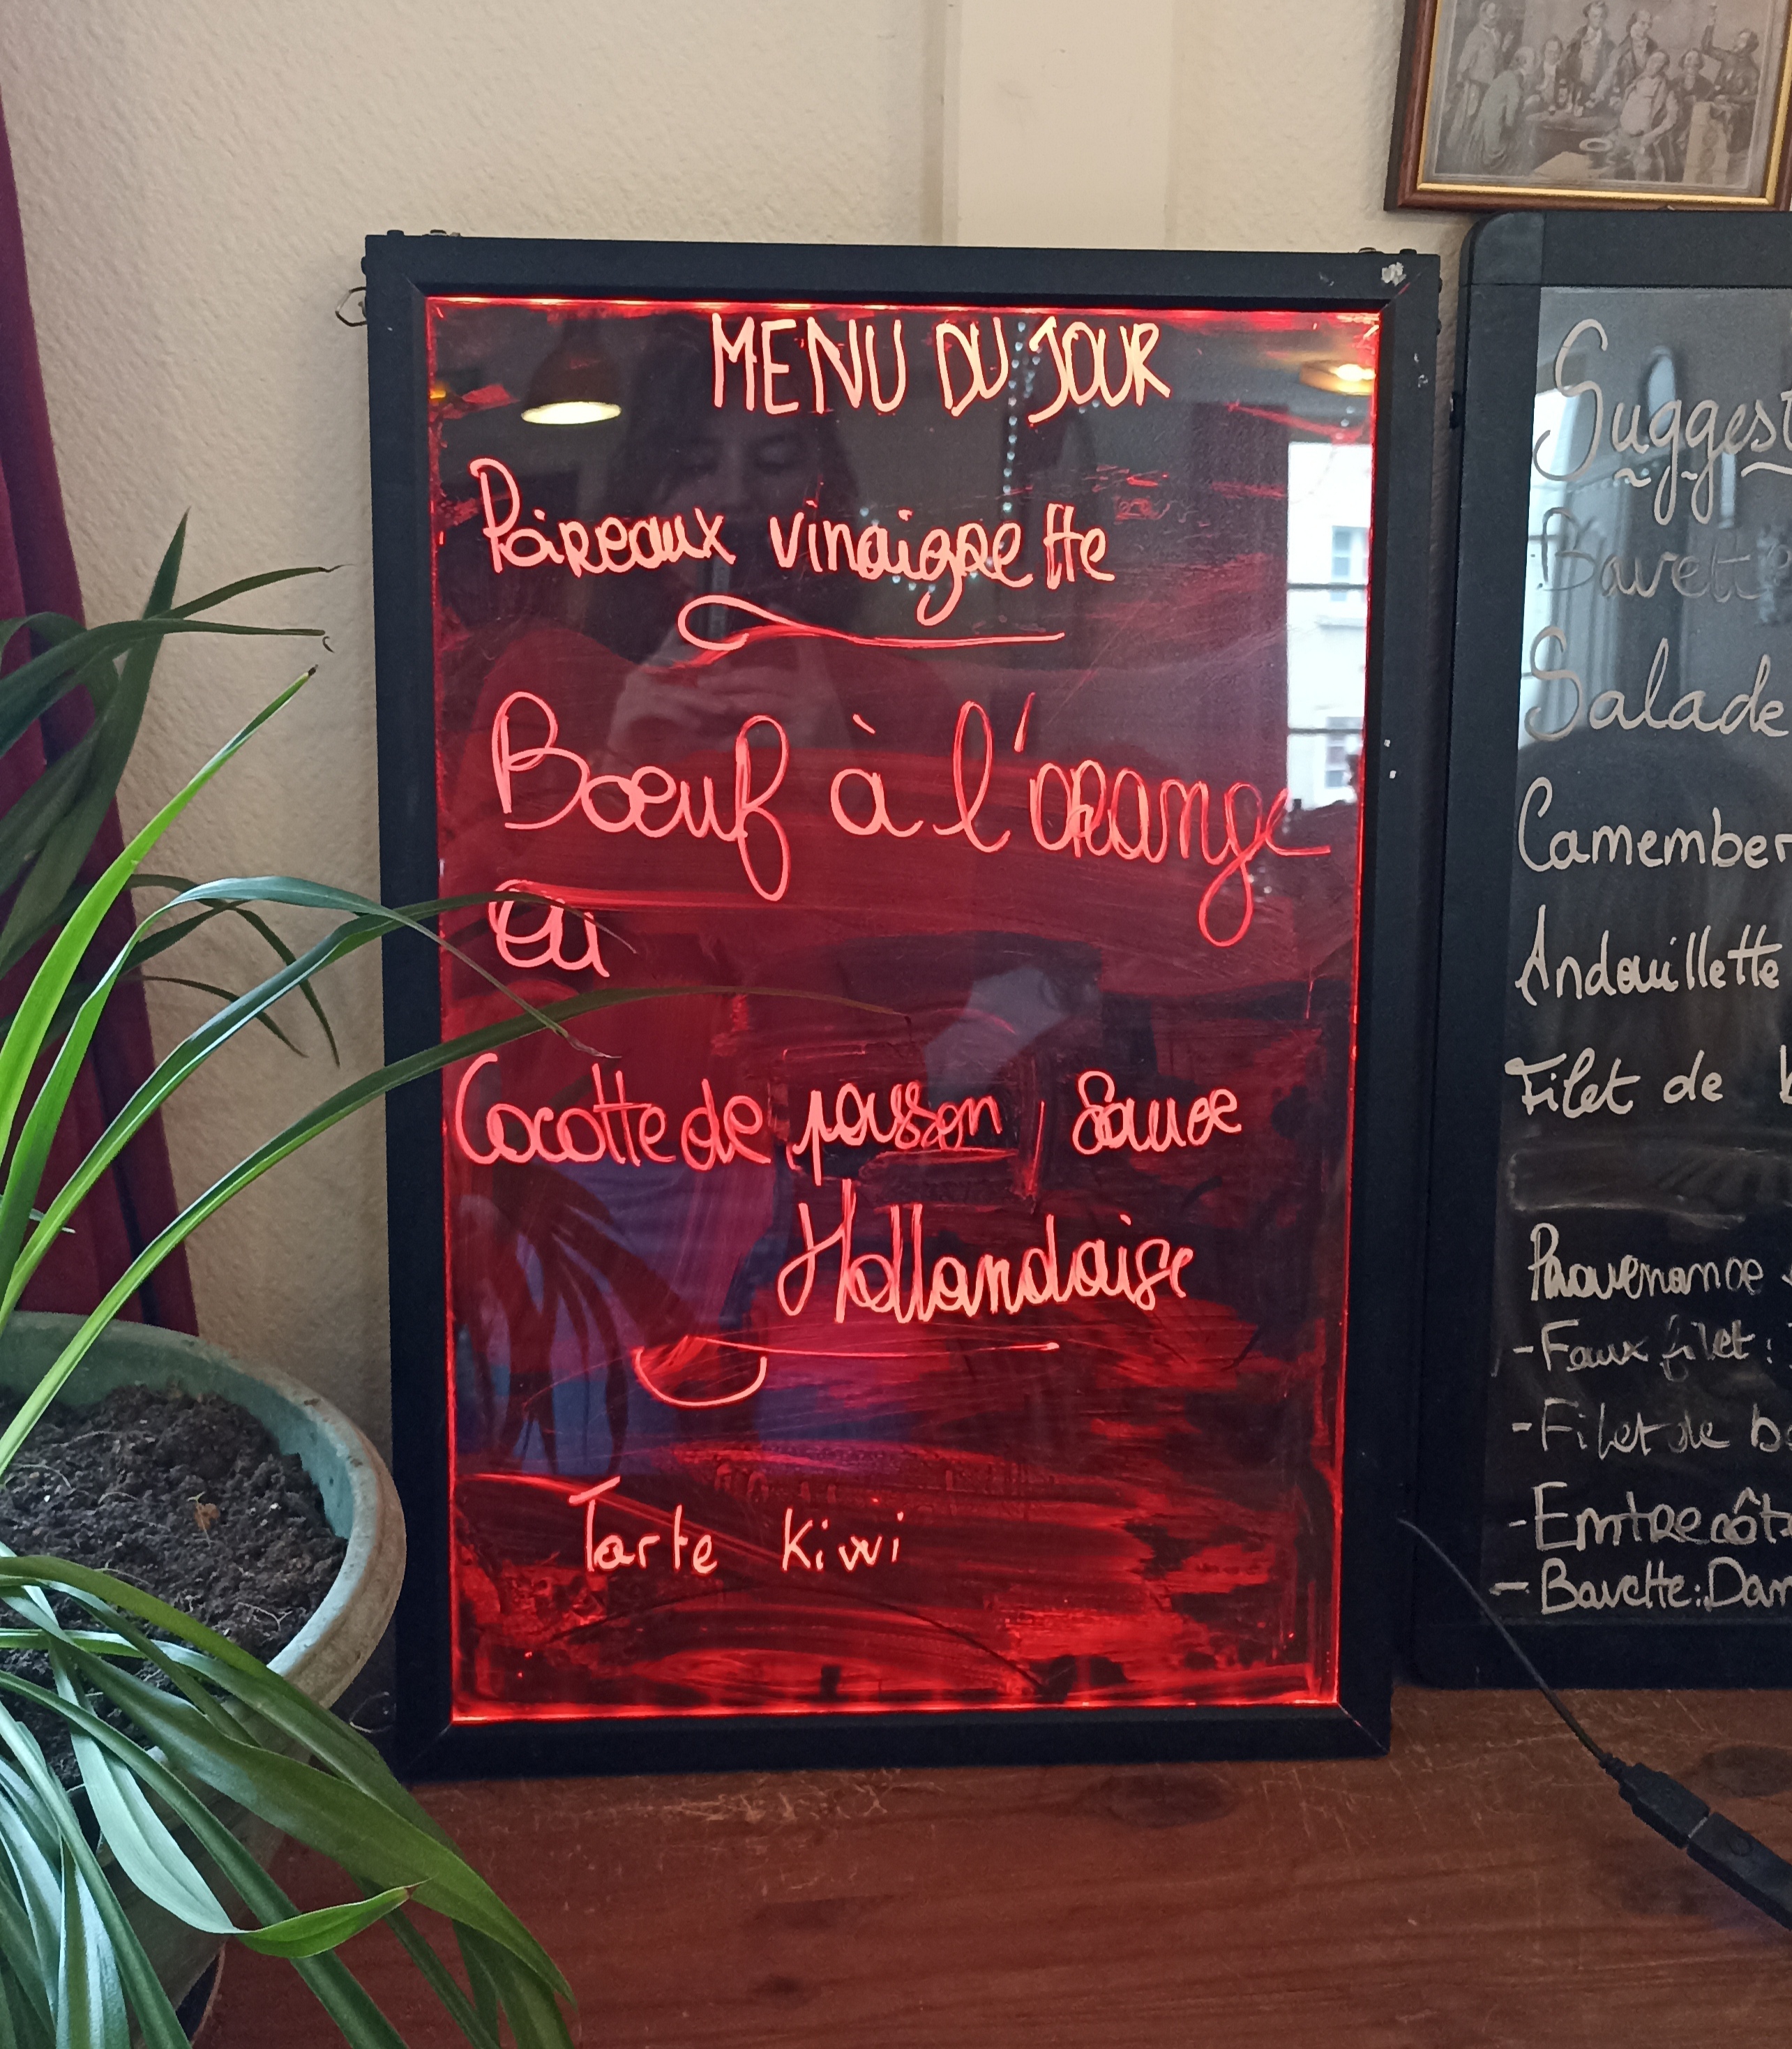 MENU DU JOUR
Poireaux vinaigrette
Boeuf à l'orange
ou
Cocotte de poisson, Sauce
Hollandaise
Tarte Kiwi
Suggest
Bavette
Salade
Camember
Andouillette
Filet de
Provenance
- Faux filet :
- Filet de bo
- Entrecôt
- Bavette: Dan